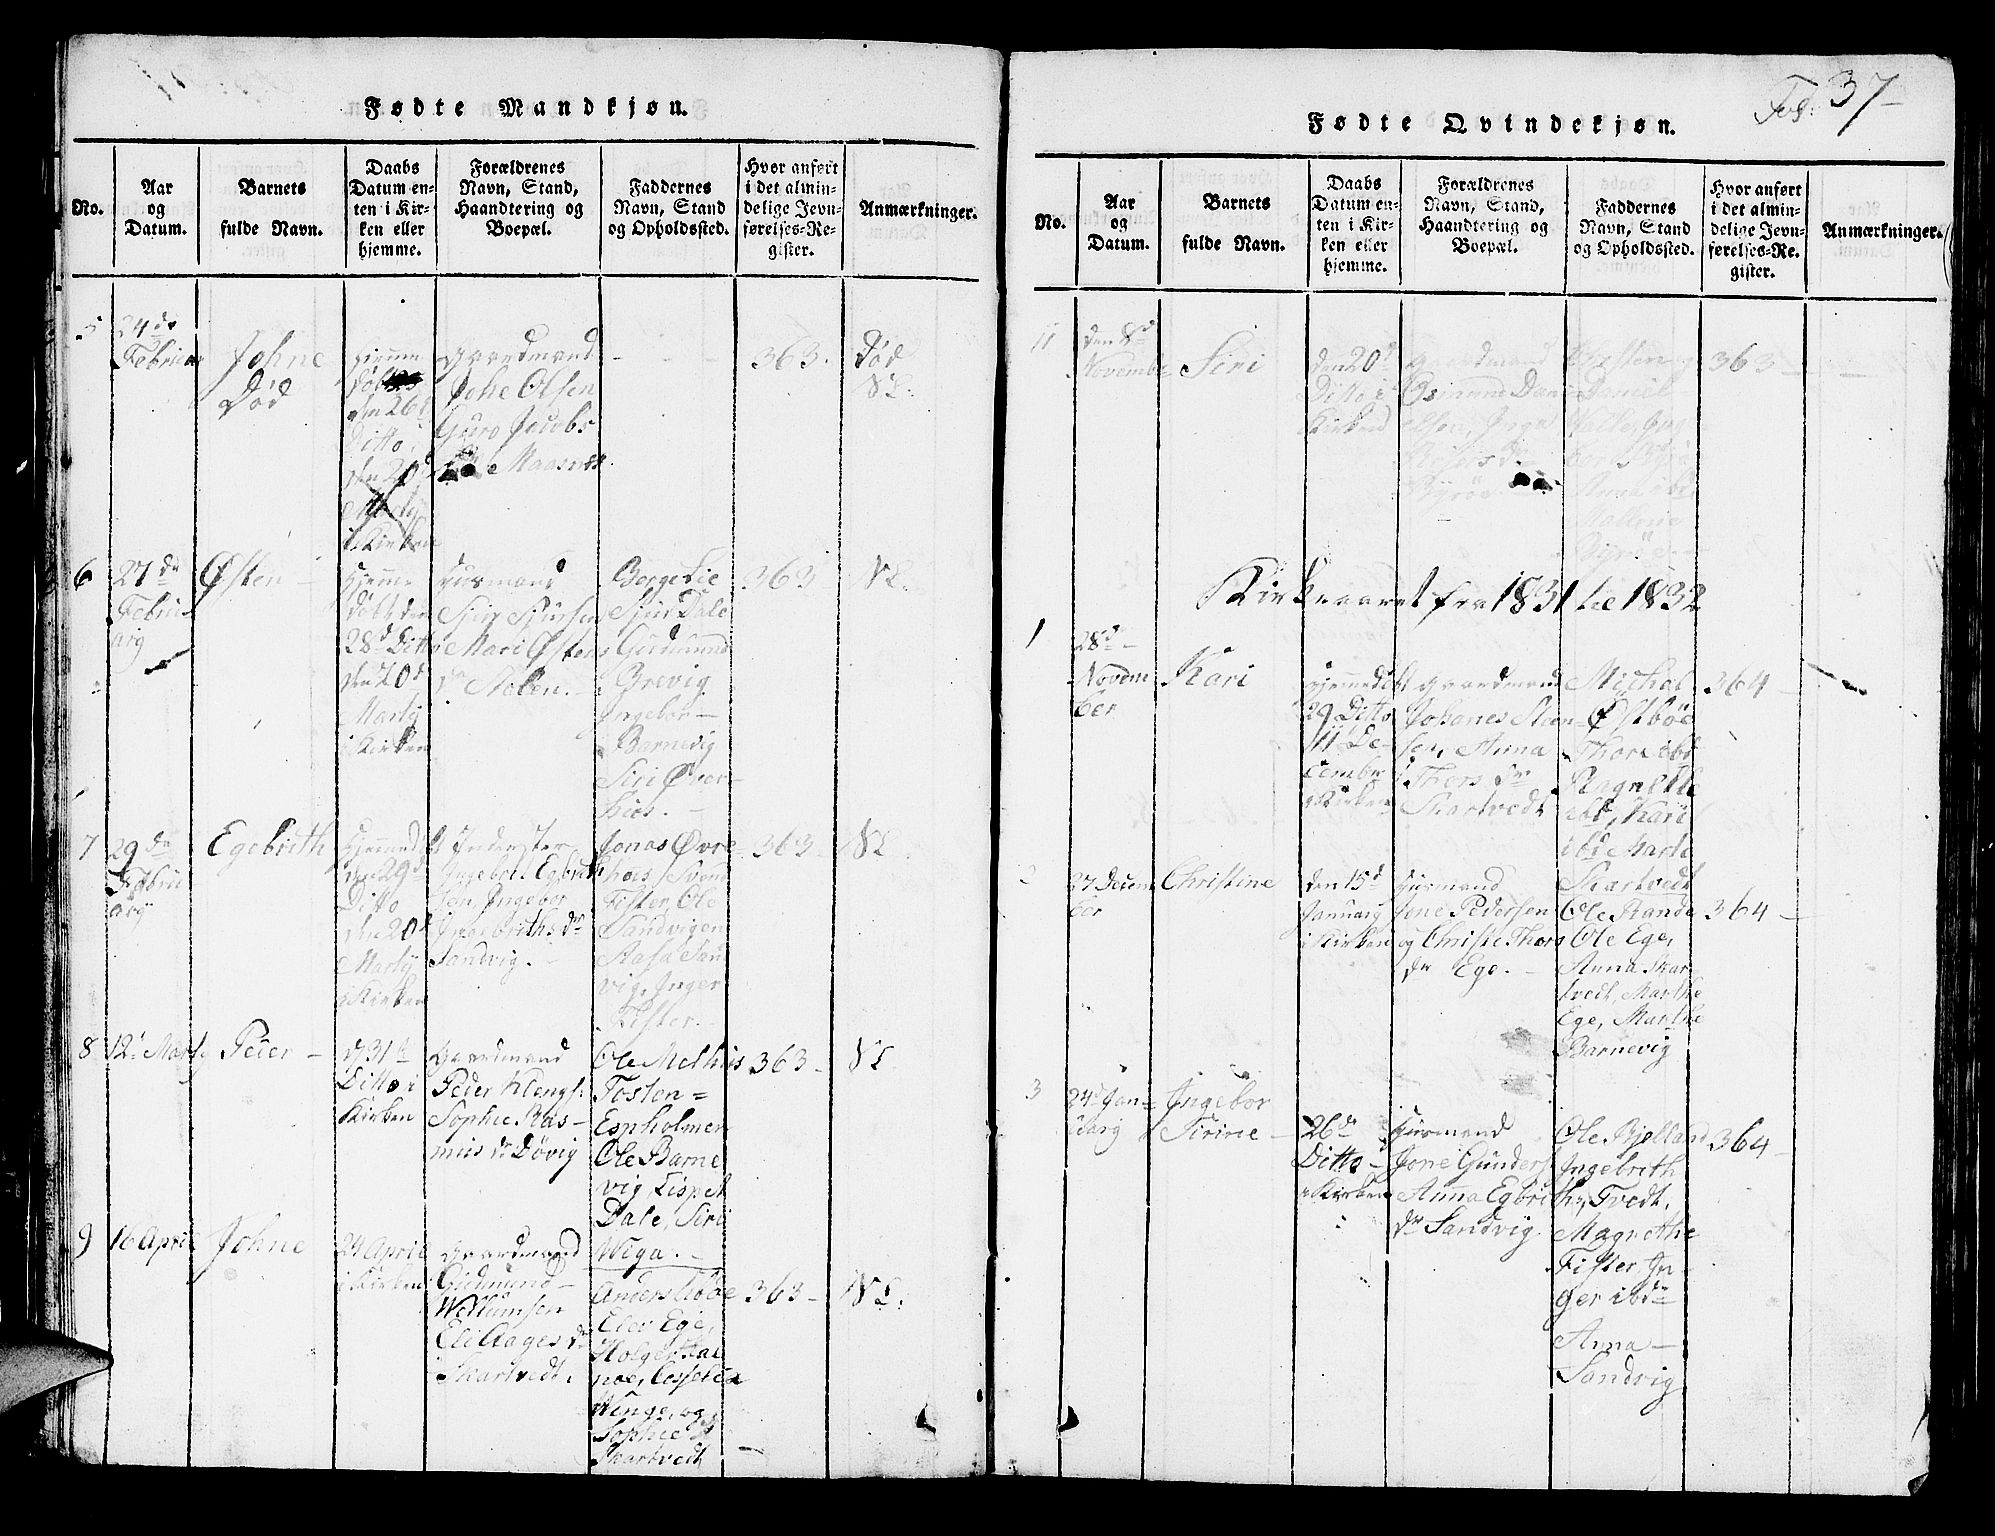 Fødte Mandkjøn.
No.
Aar
og
Datum.
Barnets
fulde Navn.
Daabs
Datum en-
ten i Kir-
ken eller
hjemme.
Forældrenes
Navn, Stand,
Haandtering og
Boepæl.
Faddernes
Navn, Stand
og Opholdssted.
Hvor anført
i det almin-
delige Jevn-
førelses-Re-
gister.
Anmærkninger.
5
24de
Februar
Johne
Død
Hjemme
døbt
den 26d
Ditto
den 20d
Martÿ
i Kirken
Gaardmand
Johe Olsen
Guro Jacobs
Maasnes
363.
Død
6
27de
Febru-
ary
Østen
Hjemme
døbt den
28d Ditto
den 20d
Martÿ
i Kirken
Huusmand
Siur Siursen
Mari Østens
dr Nolen.
Borge Lie
Siur Dale
Gudmund
Brevig
Ingebor
Barnevig
Siri Øver-
huus.
363
7
29de
Febru-
ary
Egebrith
Hjemmedøbt
den 29d
Ditto
den 20d
Martÿ
i Kirken
Inderster
Ingebrit Egbrith
sen, Ingebor
Ingebriths dr
Sandvig.
Jonas Øvre
huus, Svend
Fister, Ole
Sandvigen
Aasa Sand
vig, Inger
Fister.
363
8
12t Marty
Peder
d 31t
Ditto i
Kirken
Gaardmand
Peder Klengs:
Sophie Ras-
mus dr Døvig
Ole Melhus
Tosten=
Espholmen
Ole Barne
vig, Lispet
Dale, Siri
Wiga.
363
9
16 April
Johne
24 April
i Kirken
Gaardmand
Gudmund
Willumsen
Eli Aages dr
Skartvedt.
Anders Bøe
Elev Ege,
Holger Hal
nøe,
Winge, og
Sophie
Skartvedt
363
Fol: 37
Fødte Qvindekjøn.
No.
Aar
og
Datum.
Barnets
fulde Navn.
Daabs
Datum en-
ten i Kir-
ken eller
hjemme.
Forældrenes
Navn, Stand,
Haandtering og
Boepæl.
Faddernes
Navn, Stand
og Opholdssted.
Hvor anført
i det almin-
delige Jevn-
førelses-Re-
gister.
Anmærkninger.
11
den 8d
Novembr
Siri
den 20d
Ditto i
Kirken
Gaardmand
Osmund Dani
elsen, Inga
Byrøe
Daniel
Halle, Ing
bor Byr
Anna ibd
Mallene
Byrøe.
363
Kirkeaaret fra 1831 til 1832
1
28de
Novem
ber
Kari
Hjemmedøbt
29 Ditto
11 De-
cember
i Kirken
Gaardmand
Johanes Steen-
sen, Anna
Thors dr
Skartvedt
Michel
Østbøe
Thore ibd
Ragnilde
ibd, Kari
ibd Marte
Skartvedt
364
2
27 Decem
ber
Christine
den 15d
January
i Kirken
Huusmand
Jone Pedersen
og Christe Thors
dr Ege.
Ole Rande
Ole Ege,
Anna Skar
tvedt, Marthe
Ege, Marthe
Barnevig
364
3
24 Jan-
uary
Ingebor
Sirine
26de
Ditto
i Kirken
Huusmand
Jone Gunders
Anna Egbrith
dr Sandvig
Ole Bjelland
Ingebrith
Tvedt,
Magrethe
Fister, In-
ger ibdm
Anna
Sandvig
364